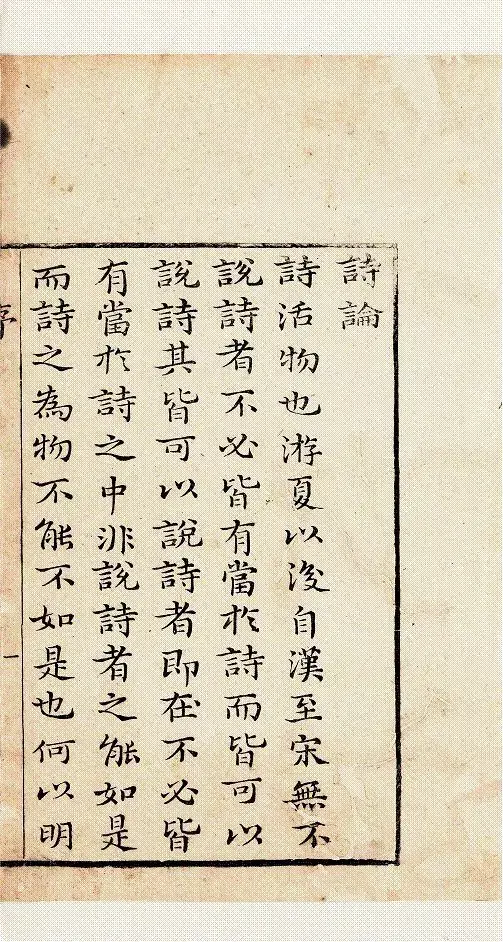 詩論
詩活物也游夏以後自漢至宋無不
說詩者不必皆有當於詩而皆可以
說詩其皆可以說詩者即在不必皆
有當於詩之中非說詩者之能如是
而詩之為物不能不如是也何以明
序
一